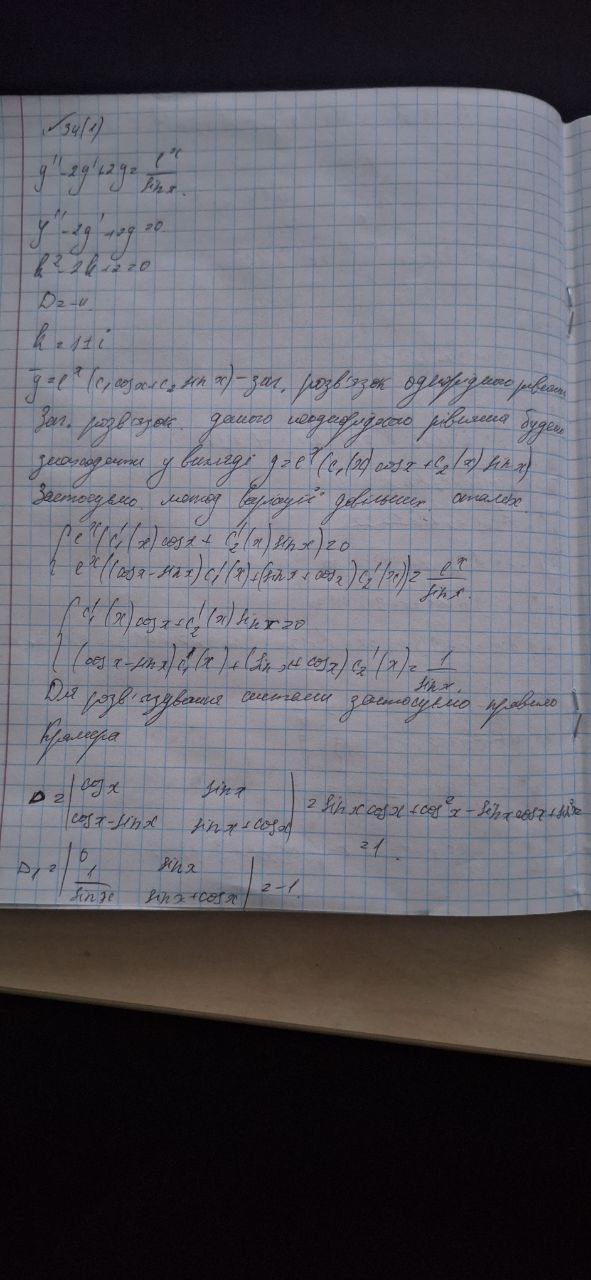 №34(1)
y'' - 2y' + 2y = e^x / sin x.
y'' - 2y' + 2y = 0.
k² - 2k + 2 = 0
D = -4.
k = 1 ± i
ȳ = e^x (c₁ cos x + c₂ sin x) - заг. розв'язок однорідного рівняння
Заг. розв'язок даного неоднорідного рівняння будемо
знаходити у вигляді y = e^x (c₁(x) cos x + c₂(x) sin x)
Застосуємо метод варіації довільних сталих
{ e^x (c₁'(x) cos x + c₂'(x) sin x) = 0
e^x ((cos x - sin x) c₁'(x) + (sin x + cos x) c₂'(x)) = e^x / sin x.
{ c₁'(x) cos x + c₂'(x) sin x = 0
(cos x - sin x) c₁'(x) + (sin x + cos x) c₂'(x) = 1 / sin x.
Для розв'язування системи застосуємо правило
Крамера
D = | cos x sin x | = sin x cos x + cos² x - sin x cos x + sin² x =
| cos x - sin x sin x + cos x | = 1.
D₁ = | 0 sin x |
| 1 / sin x sin x + cos x | = -1.